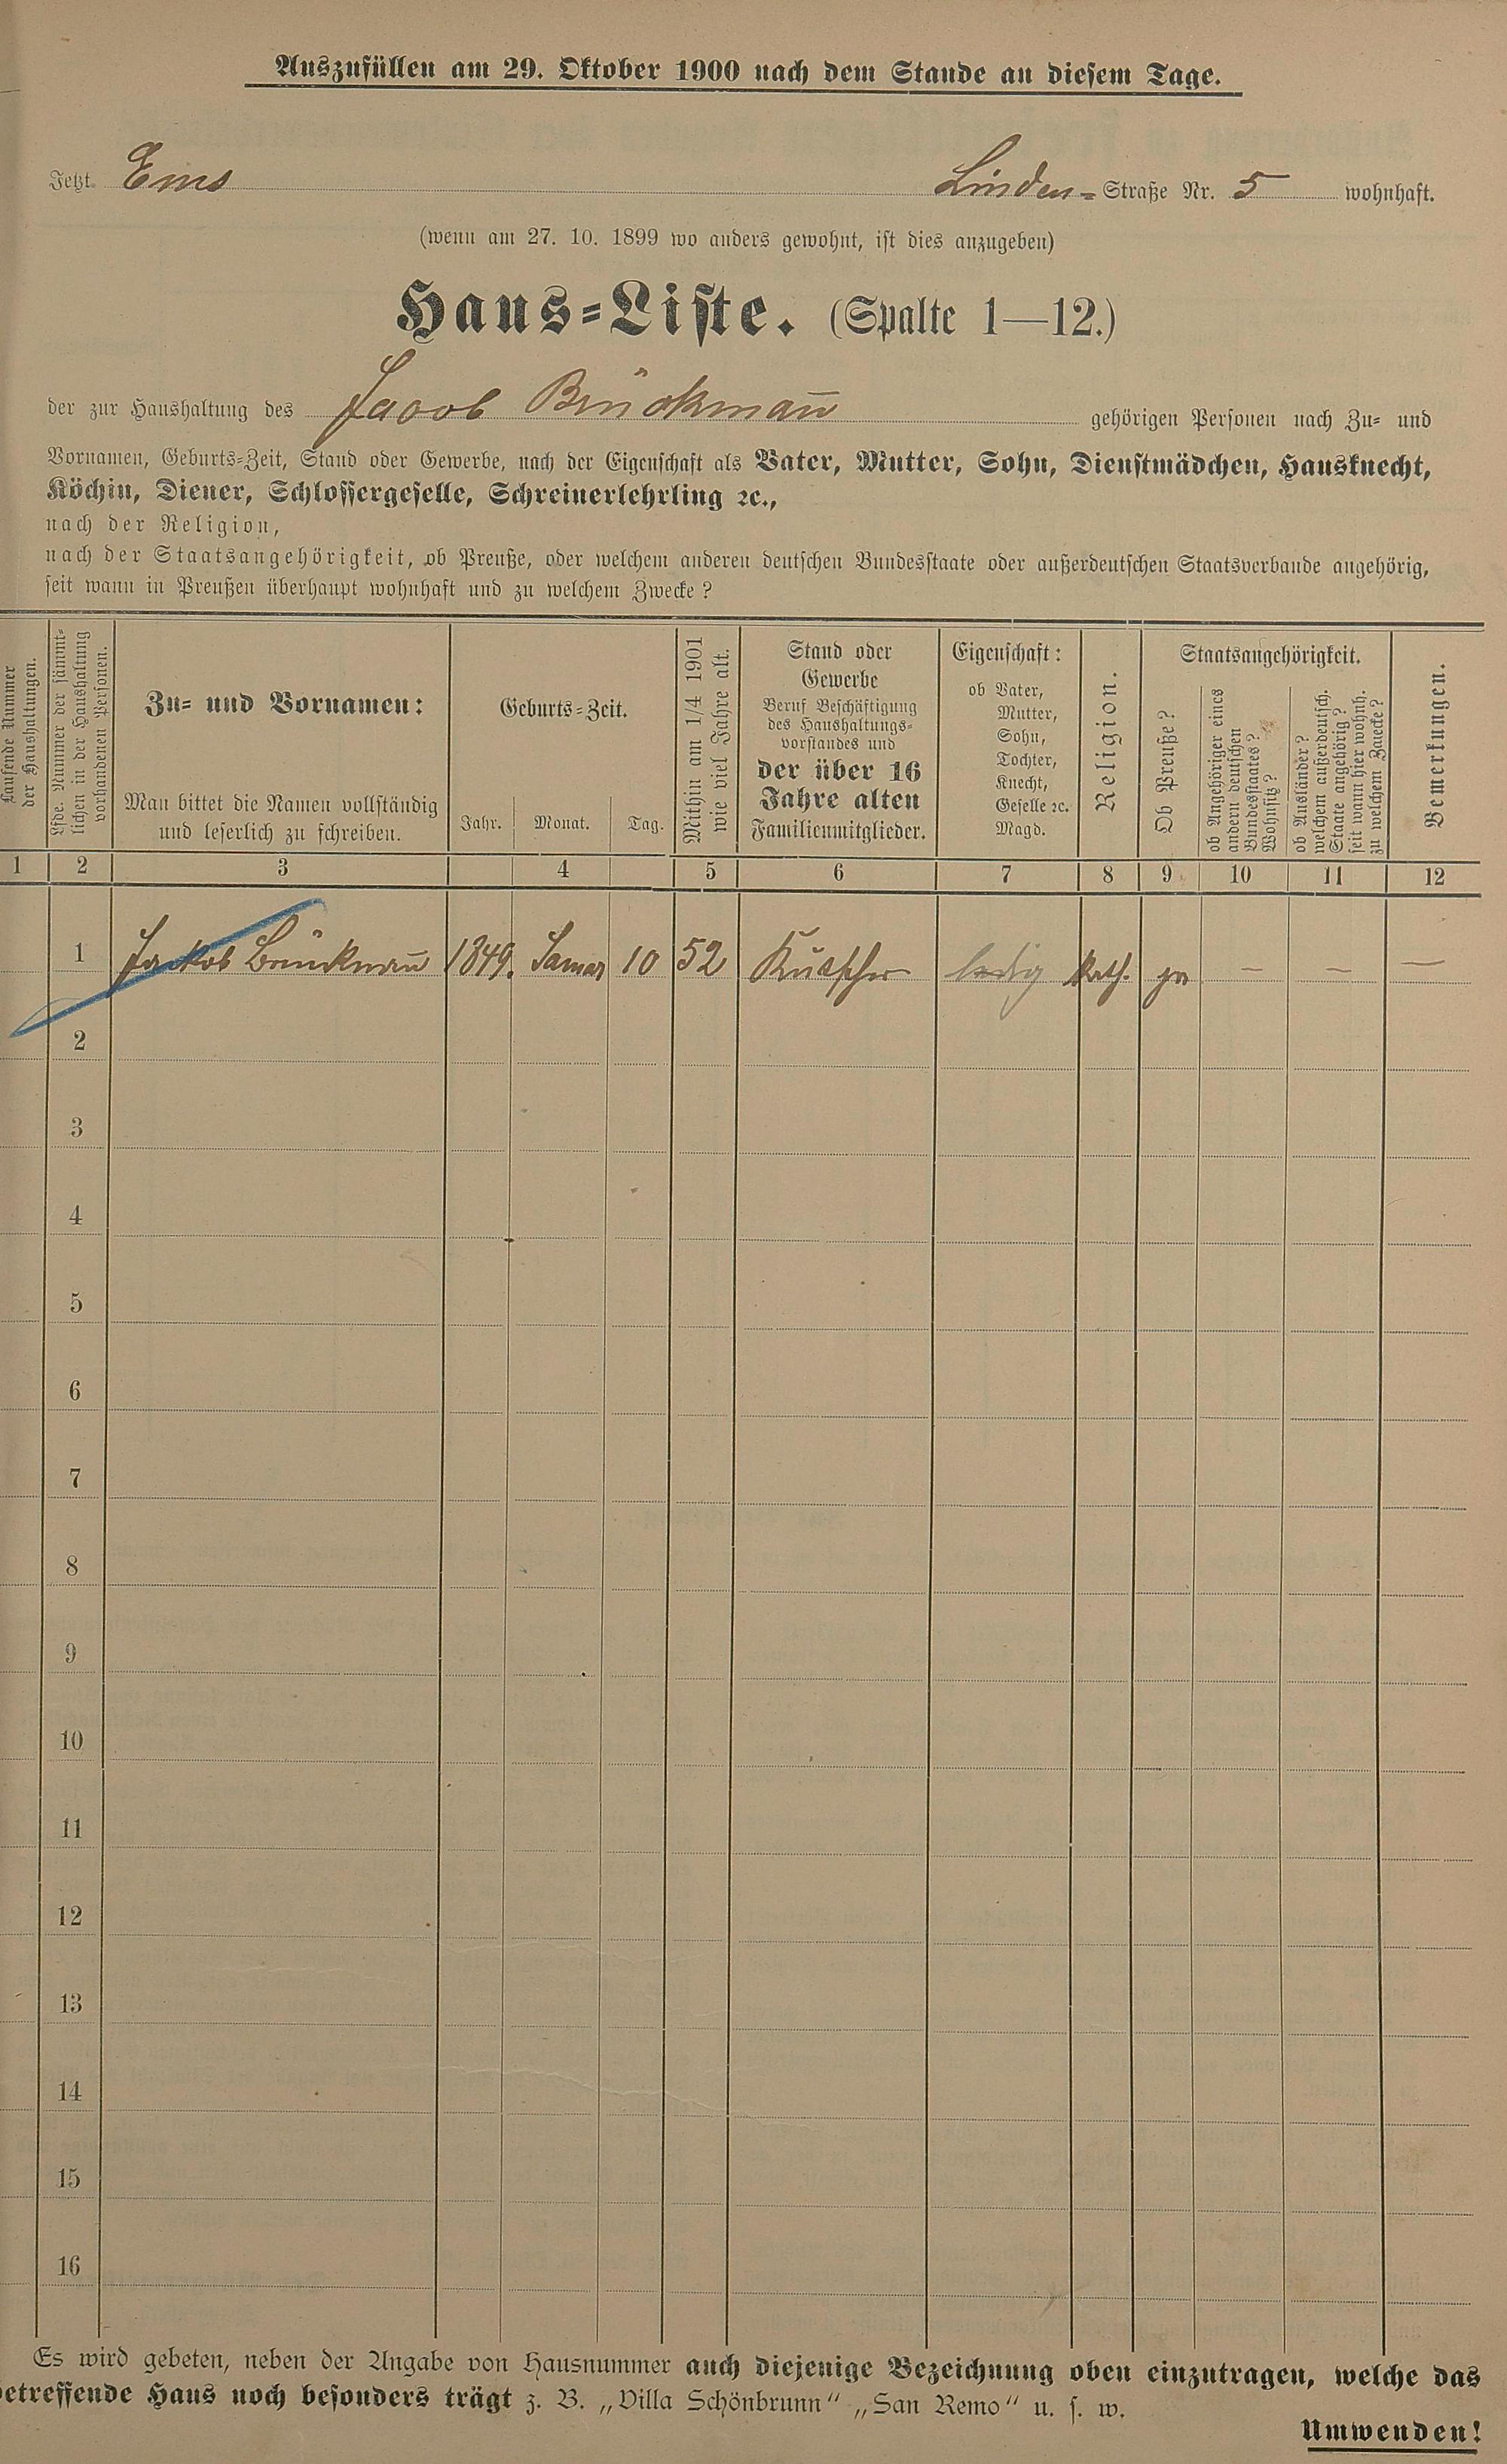 Auszufüllen am 29. Oktober 1900 nach dem Stande an diesem Tage.
Jetzt Ems Linden-Straße Nr. 5 wohnhaft.
(wenn am 27. 10. 1899 wo anders gewohnt, ist dies anzugeben)
Haus-Liste. (Spalte 1—12.)
der zur Haushaltung des Jacob Brückmañ gehörigen Personen nach Zu- und
Vornamen, Geburts-Zeit, Stand oder Gewerbe, nach der Eigenschaft als Vater, Mutter, Sohn, Dienstmädchen, Hausknecht,
Köchin, Diener, Schlossergeselle, Schreinerlehrling ꝛc.,
nach der Religion,
nach der Staatsangehörigkeit, ob Preuße, oder welchem anderen deutschen Bundesstaate oder außerdeutschen Staatsverbande angehörig,
seit wann in Preußen überhaupt wohnhaft und zu welchem Zwecke?
Laufende Nummer
der Haushaltungen.
Lfde. Nummer der sämmt-
lichen in der Haushaltung
vorhandenen Personen.
Zu- und Vornamen:
Man bittet die Namen vollständig
und leserlich zu schreiben.
Geburts-Zeit.
Jahr. Monat. Tag.
Mithin am 1/4 1901
wie viel Jahre alt.
Stand oder
Gewerbe
Beruf Beschäftigung
des Haushaltungs-
vorstandes und
der über 16
Jahre alten
Familienmitglieder.
Eigenschaft:
ob Vater,
Mutter,
Sohn,
Tochter,
Knecht,
Geselle ꝛc.
Magd.
Religion.
Staatsangehörigkeit.
Ob Preuße?
ob Angehöriger eines
andern deutschen
Bundesstaates?
Wohnsitz?
ob Ausländer?
welchem außerdeutsch.
Staate angehörig?
seit wann hier wohnh.
zu welchem Zwecke?
Bemerkungen.
1 2 3 4 5 6 7 8 9 10 11 12
1 Jackob Brückmañ 1849. Januar 10 52 Kutscher ledig kath. ja — — —
2
3
4
5
6
7
8
9
10
11
12
13
14
15
16
Es wird gebeten, neben der Angabe von Hausnummer auch diejenige Bezeichnung oben einzutragen, welche das
betreffende Haus noch besonders trägt z. B. „Villa Schönbrunn“ „San Remo“ u. s. w.
Umwenden!